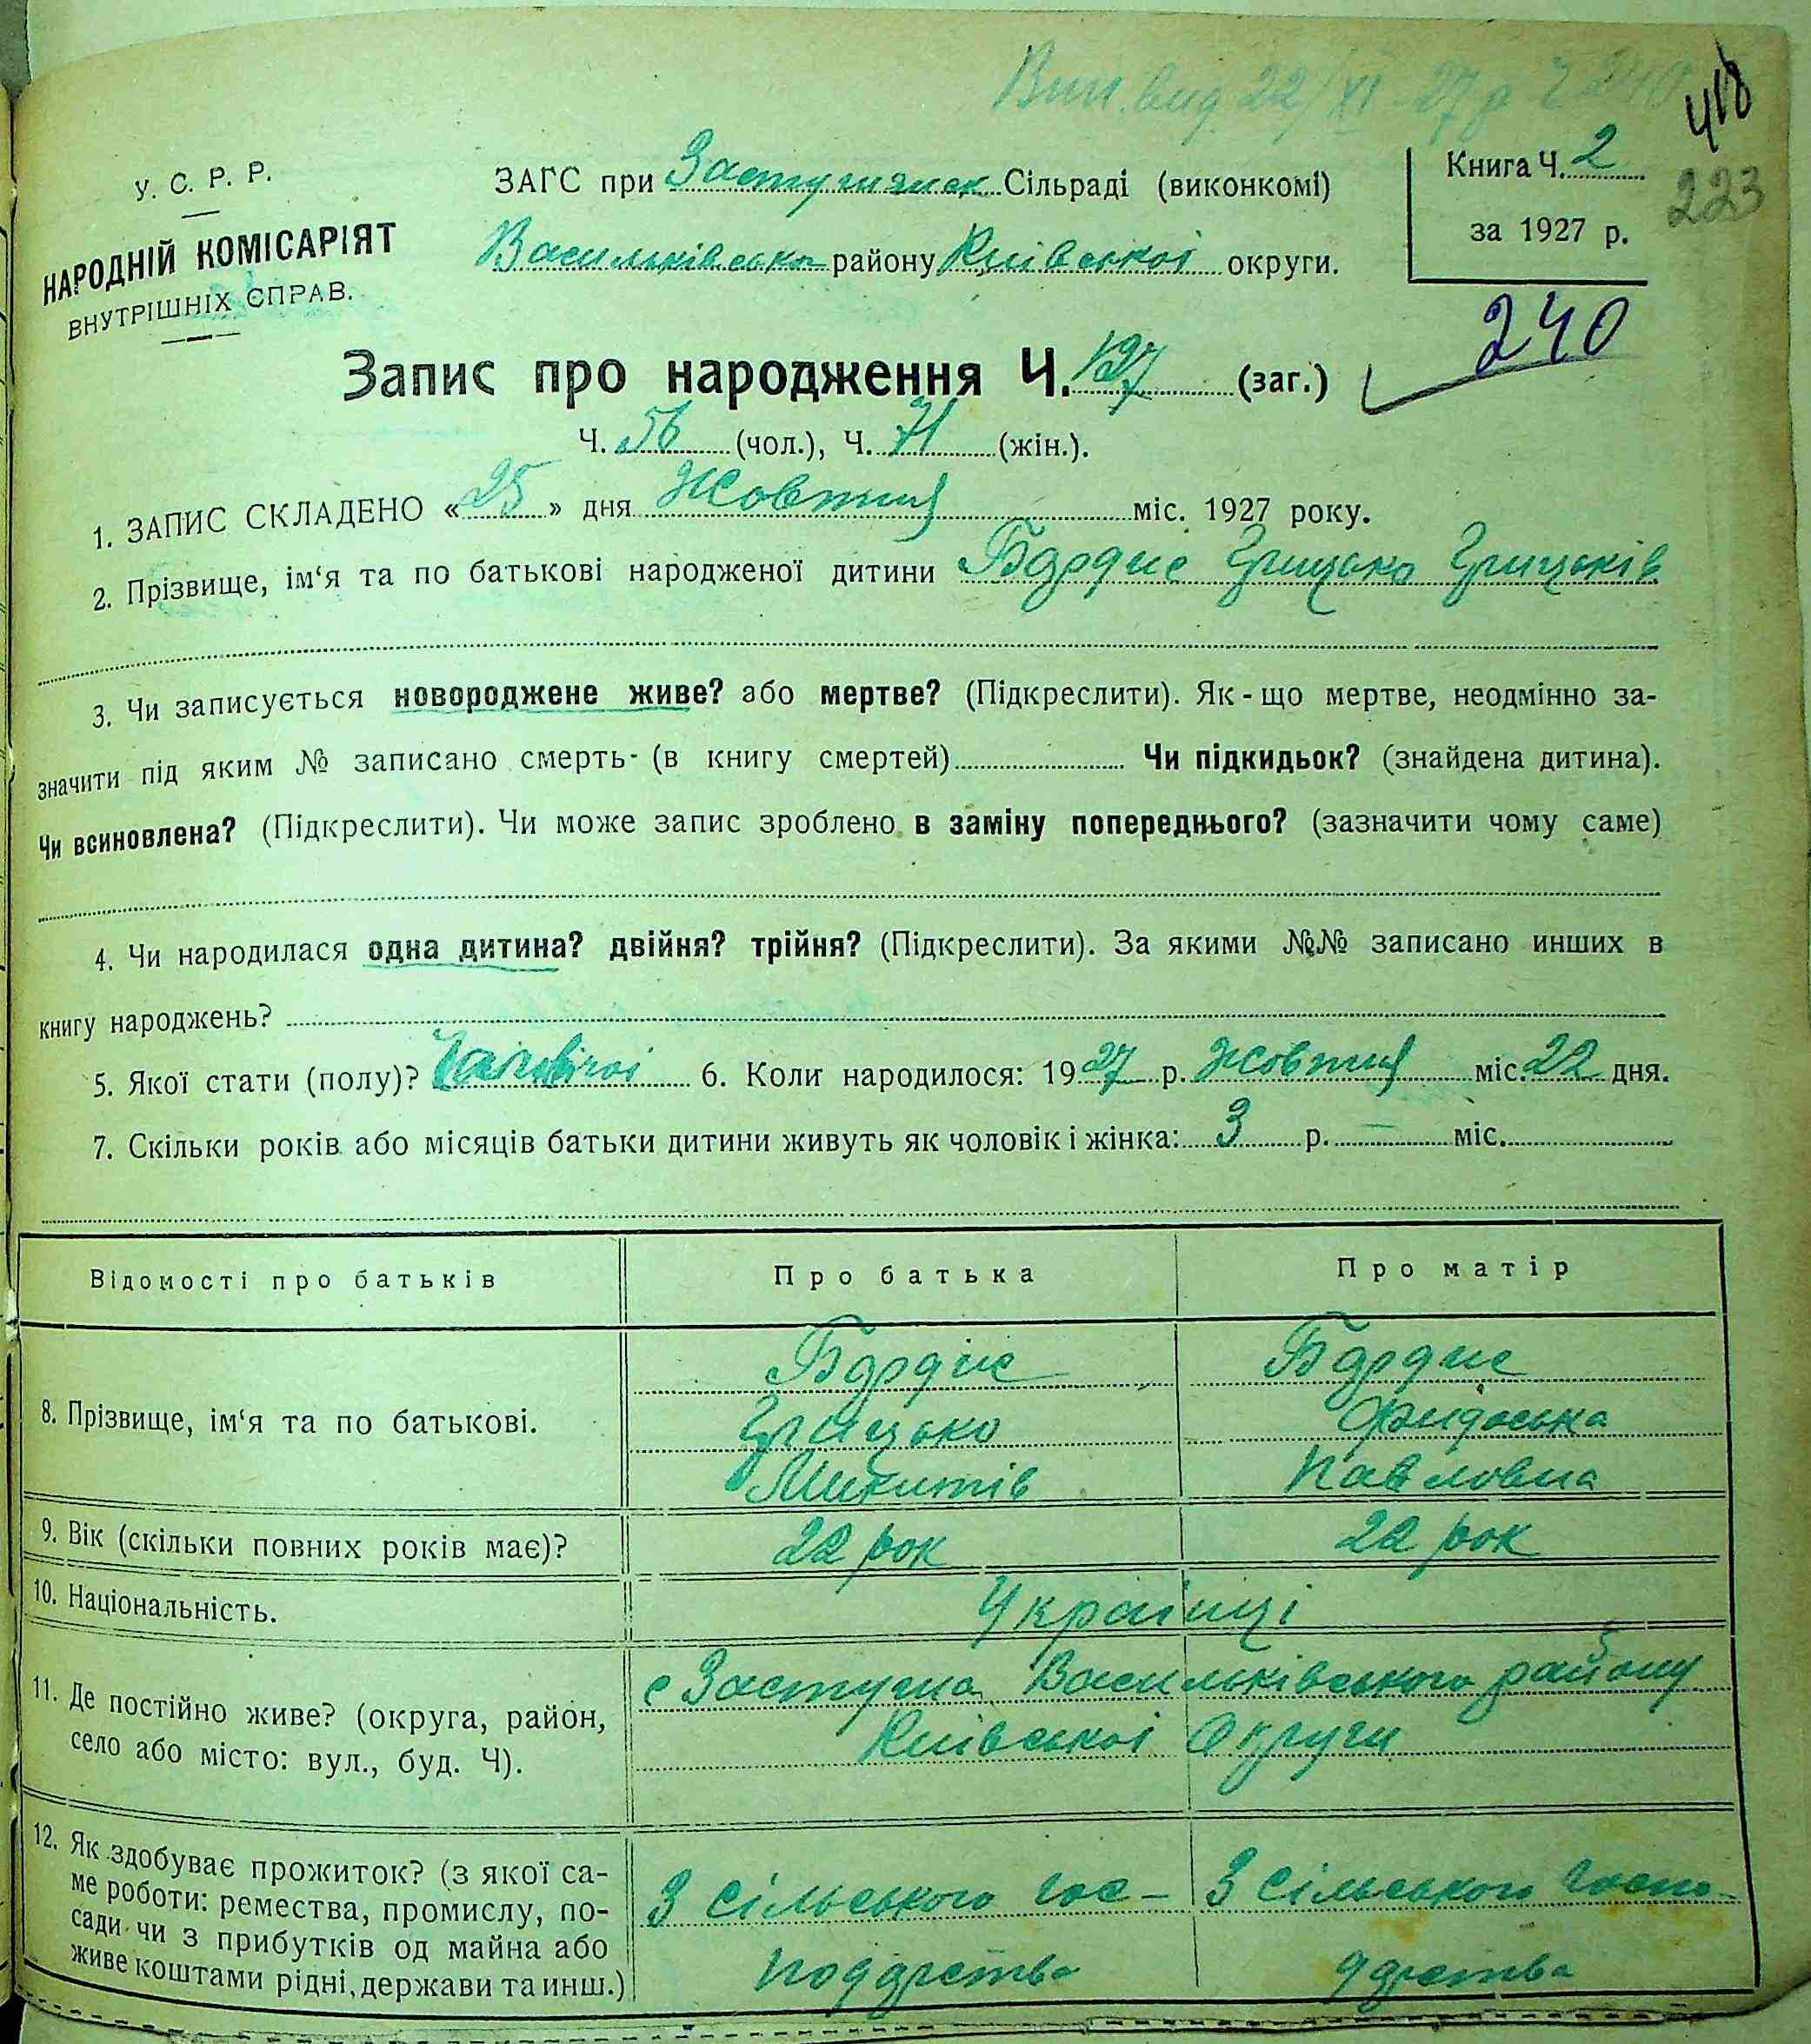 Вип. вид 22/XI 27 р Ч 240
418
У. С. Р. Р.
НАРОДНІЙ КОМІСАРІЯТ
ВНУТРІШНІХ СПРАВ.
ЗАГС при Сільраді (виконкомі)
Васильківсько району Київської округи.
Книга Ч. 2
за 1927 р.
223
240
Запис про народження Ч. 127 (заг.)
Ч. 56 (чол.), Ч. 71 (жін.).
1. ЗАПИС СКЛАДЕНО «25» дня Жовтня міс. 1927 року.
2. Прізвище, ім‘я та по батькові народженої дитини Грицько Грицьків
3. Чи записується новороджене живе? або мертве? (Підкреслити). Як-що мертве, неодмінно за-
значити під яким № записано смерть- (в книгу смертей) Чи підкидьок? (знайдена дитина).
Чи всиновлена? (Підкреслити). Чи може запис зроблено в заміну попереднього? (зазначити чому саме)
4. Чи народилася одна дитина? двійня? трійня? (Підкреслити). За якими №№ записано инших в
книгу народжень?
5. Якої стати (полу)? 6. Коли народилося: 1927 р. Жовтня міс. 22 дня.
7. Скільки років або місяців батьки дитини живуть як чоловік і жінка: 3 р. — міс.
Відомості про батьків
Про батька
Про матір
8. Прізвище, ім‘я та по батькові.
Грицько
Микитів
Павловна
9. Вік (скільки повних років має)?
22 рок
22 рок
10. Національність.
Українці
11. Де постійно живе? (округа, район,
село або місто: вул., буд. Ч).
с Застугна Васильківського району
Київської Округи
12. Як здобуває прожиток? (з якої са-
ме роботи: ремества, промислу, по-
сади чи з прибутків од майна або
живе коштами рідні, держави та инш.)
З сільського гос-
З сільського госпо-